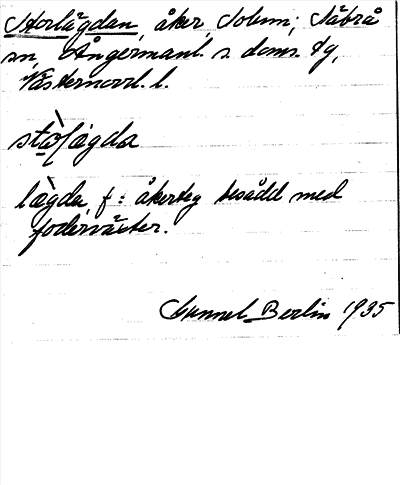 Storlägdan, åker, Solum; Säbrå
sn, Ångermanl. s. doms. tg,
Västernorrl. l.
sto̠lägda
lægda, f: åkerteg besådd med
foderväxter.
Gunnel Berlin 1935